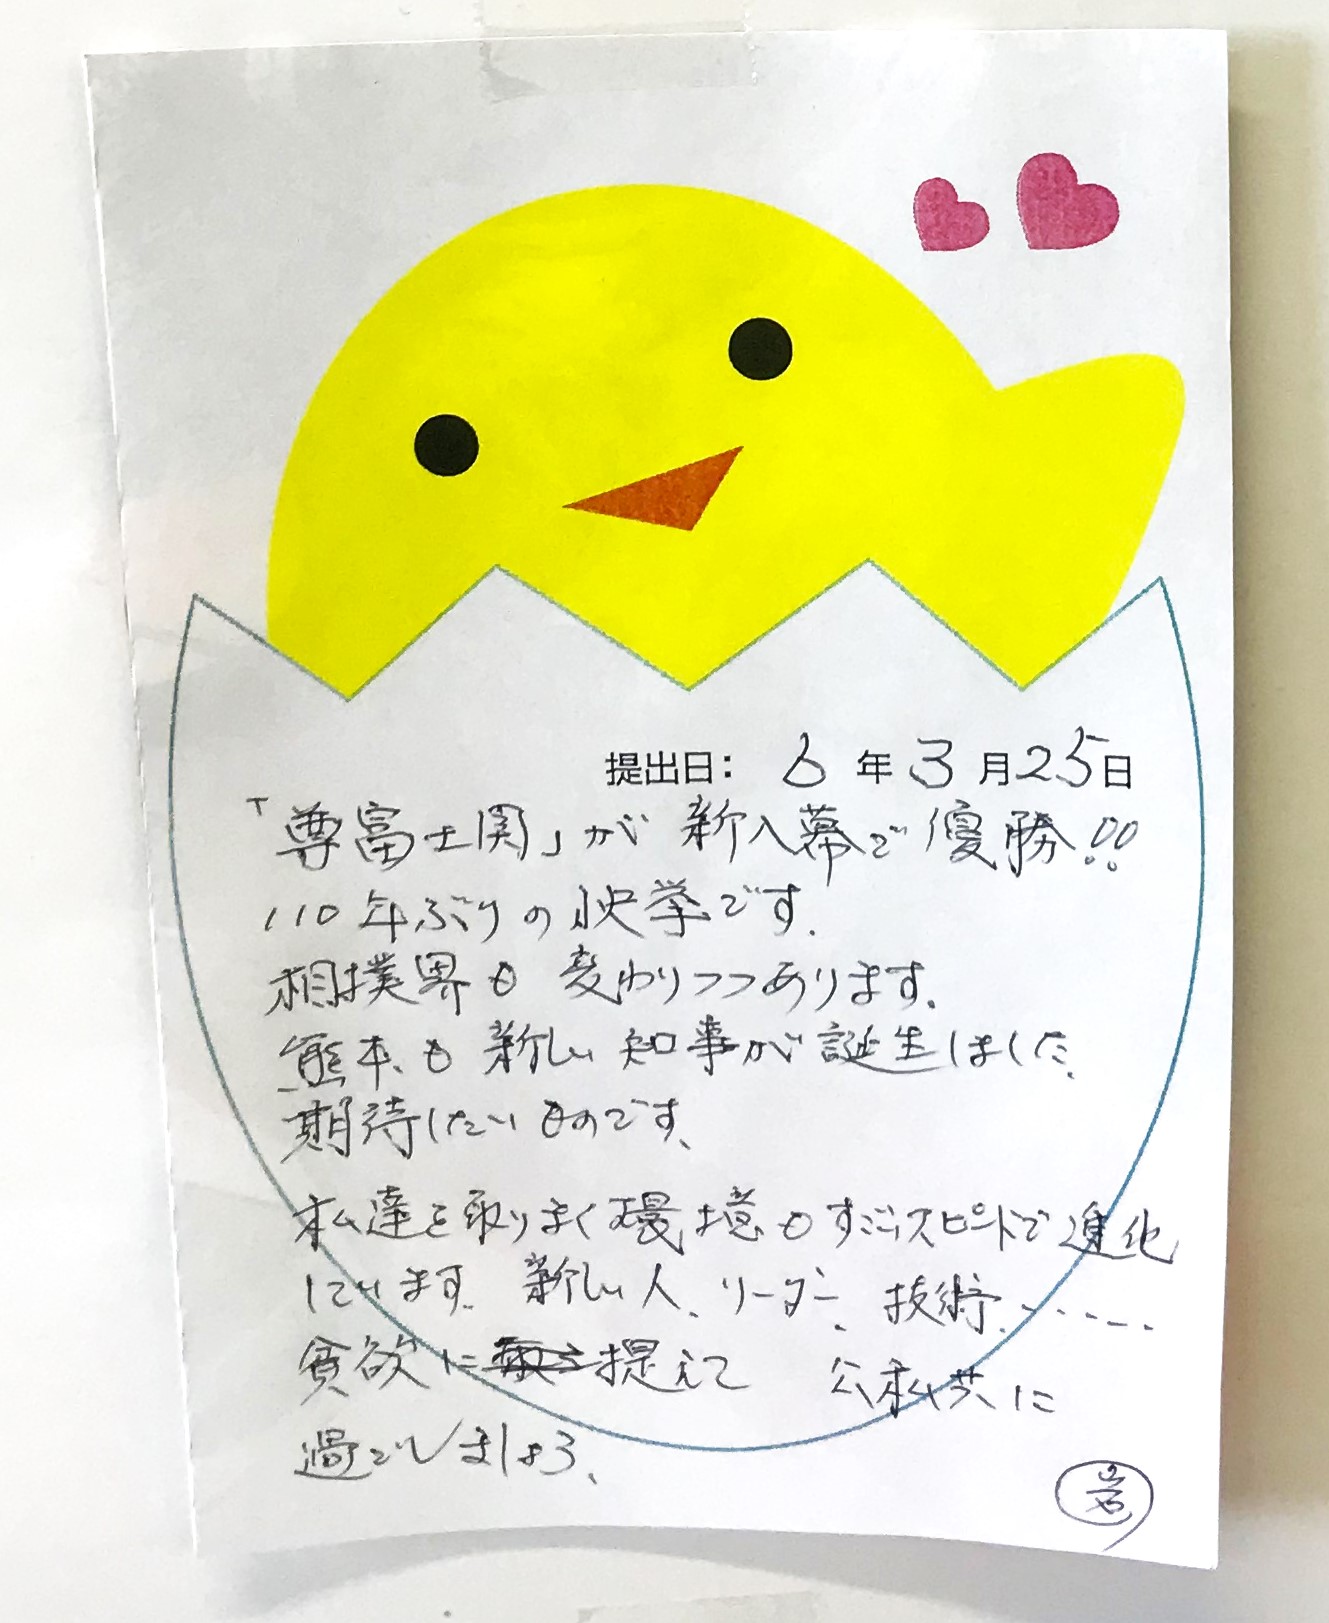 提出日: 6年3月25日
「尊富士関」が新入幕で優勝!!
110年ぶりの快挙です.
相撲界も変わりつつあります.
熊本も新しい知事が誕生しました.
期待したいものです、
私達を取りまく環境もすごいスピードで進化
しています. 新しい人、リーダー、技術、-----
貪欲に提えて 公私共に
過ごしましょう、